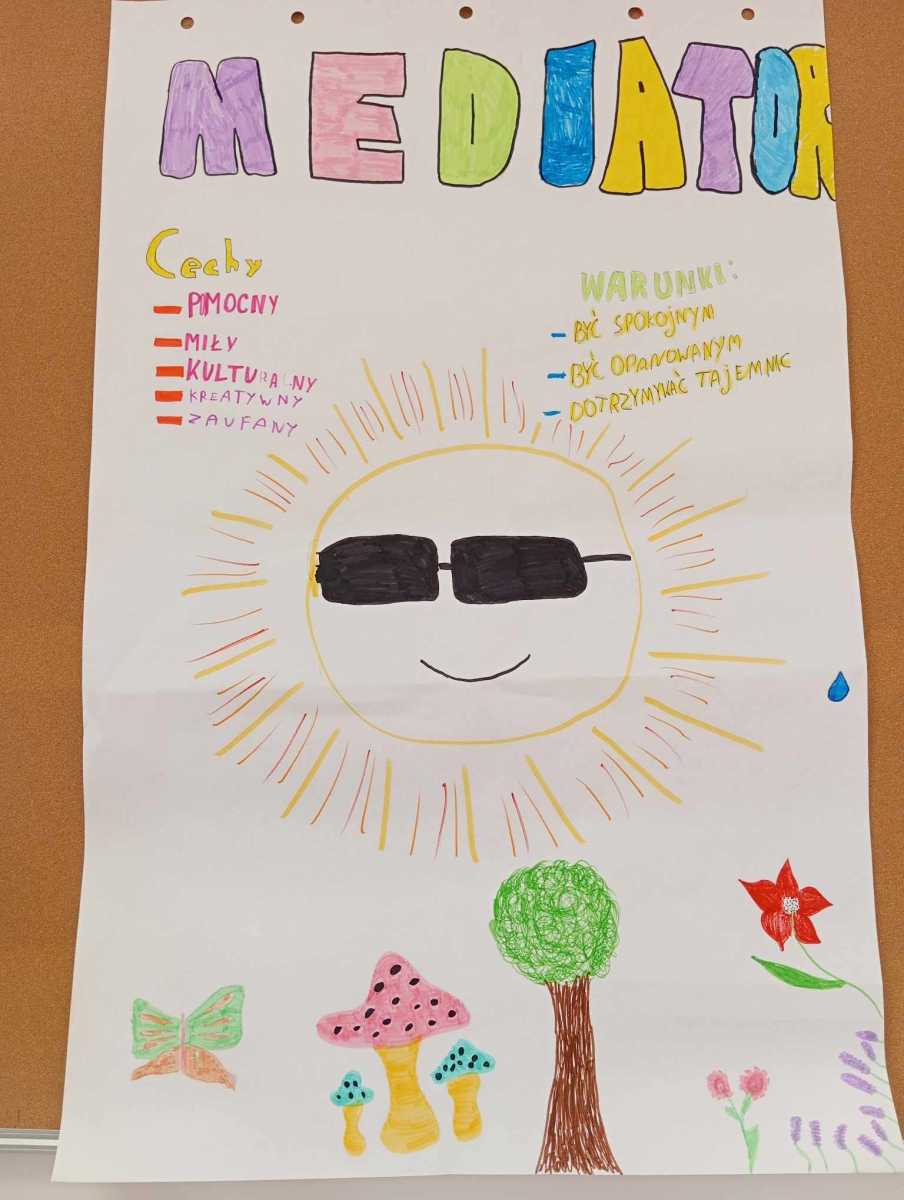 MEDIATOR
Cechy
- POMOCNY
- MIŁY
- KULTURALNY
- KREATYWNY
- ZAUFANY
WARUNKI:
- BYĆ SPOKOJNYM
- BYĆ OPANOWANYM
- DOTRZYMYWAĆ TAJEMNIC